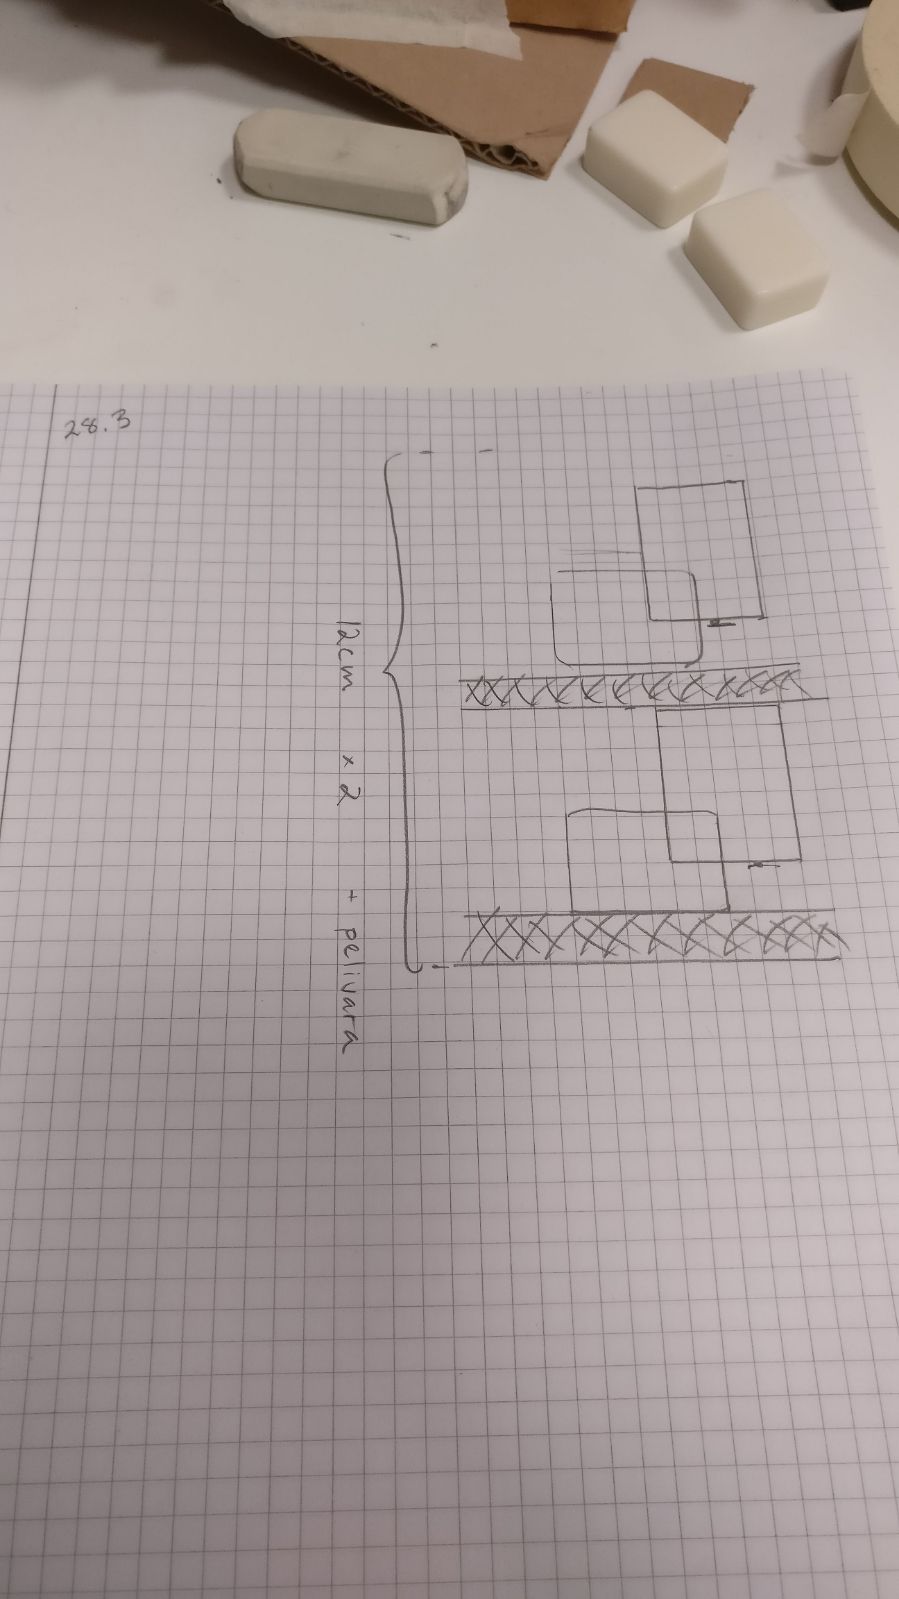 28.3
12cm x 2 + pelivara